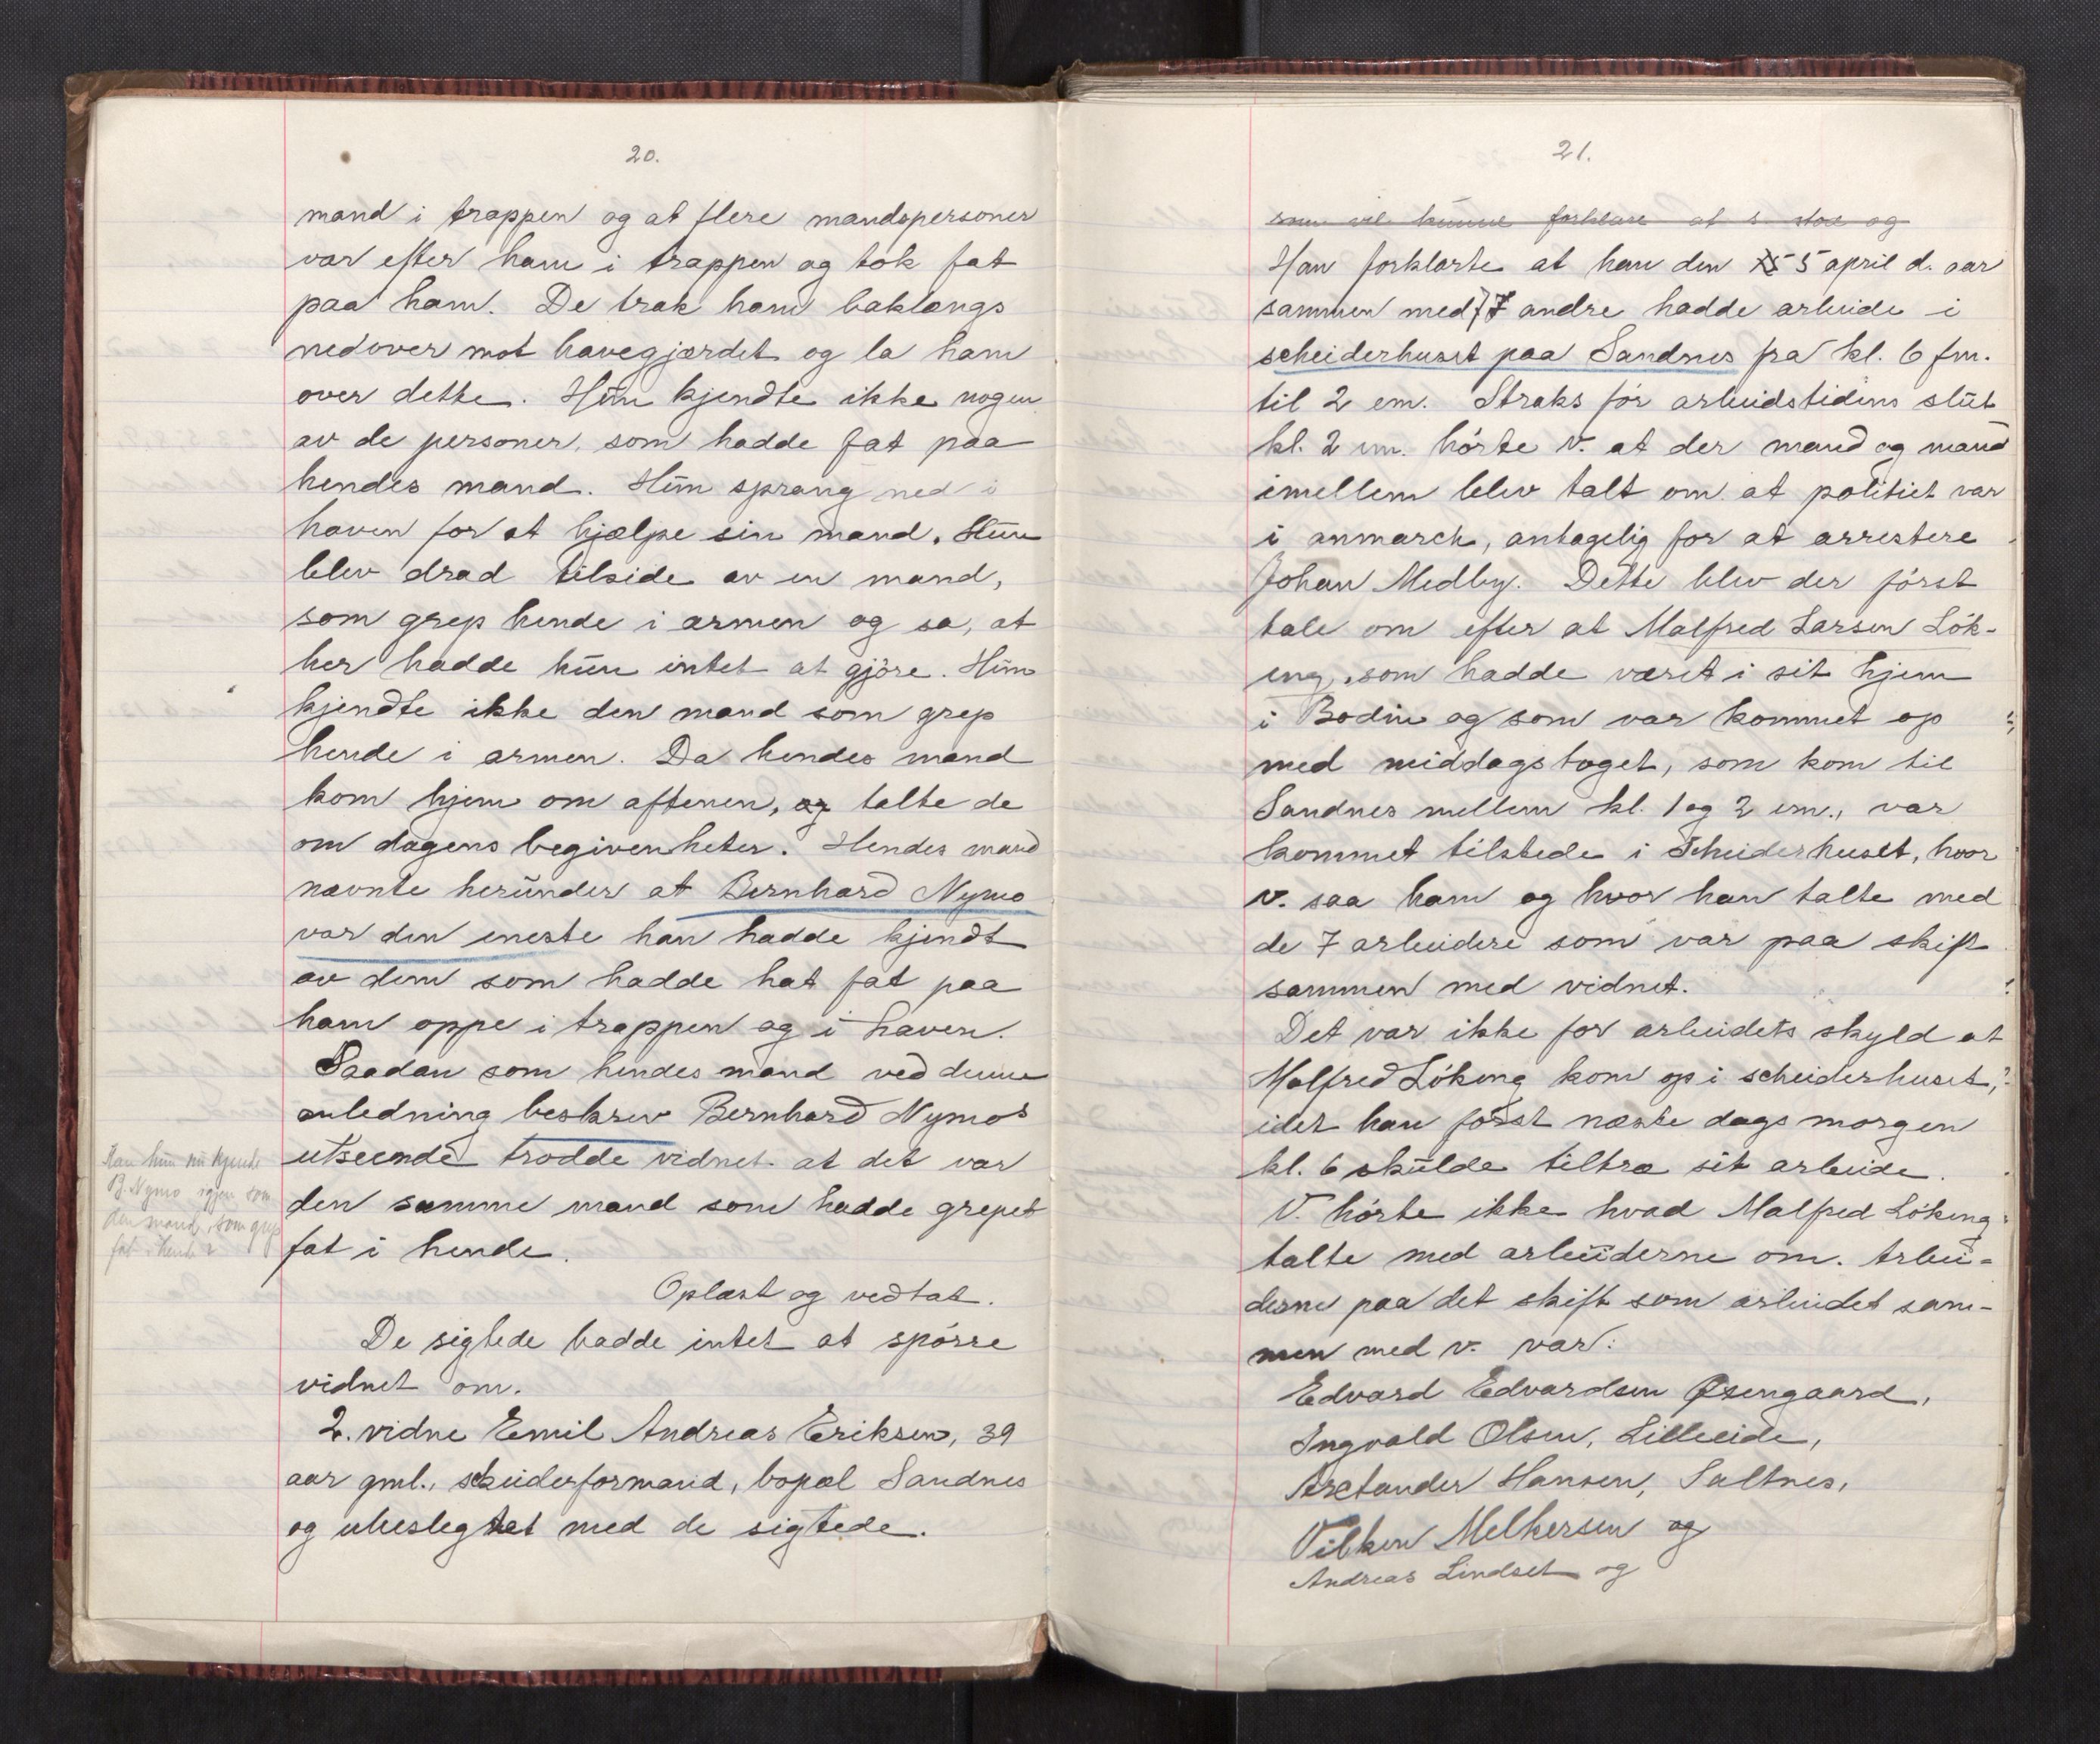 20.
mand i trappen og at flere mandspersoner
var efter ham i trappen og tok fat
paa ham. De trak ham baklængs
nedover mot havegjærdet og la ham
over dette. Hun kjendte ikke nogen
av de personer, som hadde fat paa
hendes mand. Hun sprang ned i
haven for at hjælpe sin mand. Hun
blev drad tilside av en mand,
som grep hende i armen og sa, at
her hadde hun intet at gjöre. Hun
kjendte ikke den mand som grep
hende i armen. Da hendes mand
kom hjem om aftenen, og talte de
om dagens begivenheter. Hendes mand
nævnte herunder at Bernhard Nymo
var den eneste han hadde kjendt
av dem som hadde hat fat paa
ham oppe i trappen og i haven.
Saadan som hendes mand ved denne
anledning beskrev Bernhard Nymos
utseende trodde vidnet at det var
den samme mand som hadde grepet
fat i hende.
Kan hun nu kjende
B. Nymo igjen som
den mand, som grep
fat i hende?
Oplæst og vedtat.
De sigtede hadde intet at spörre
vidnet om.
2. vidne Emil Andreas Eriksen, 39
aar gml., scheiderformand, bopæl Sandnes
og ubeslegtet med de sigtede.
21.
som vil kunne forklare at s. stod og
Han forklarte at han den 5 april d. aar
sammen med 7 andre hadde arbeide i
scheiderhuset paa Sandnes fra kl. 6 fm.
til 2 em. Straks för arbeidstidens slut
kl. 2 em. hörte v. at der mand og mand
imellem blev talt om at politiet var
i anmarch, antagelig for at arrestere
Johan Medby. Dette blev der först
tale om efter at Malfred Larsen Lök-
eng, som hadde været i sit hjem
i Bodin og som var kommet op
med middagstoget, som kom til
Sandnes mellem kl. 1 og 2 em., var
kommet tilstede i Scheiderhuset, hvor
v. saa ham og hvor han talte med
de 7 arbeidere som var paa skift
sammen med vidnet.
Det var ikke for arbeidets skyld at
Malfred Lökeng kom op i scheiderhuset,
idet han först næste dags morgen
kl. 6 skulde tiltræ sit arbeide.
V. hörte ikke hvad Malfred Lökeng
talte med arbeiderne om. Arbei-
derne paa det skift som arbeidet sam-
men med v. var:
Edvard Edvardsen Øsengaard,
Ingvald Olsen, Lilleeide,
Arctander Hansen, Saltnes,
Vilken Melkersen og
Andreas Lindset og